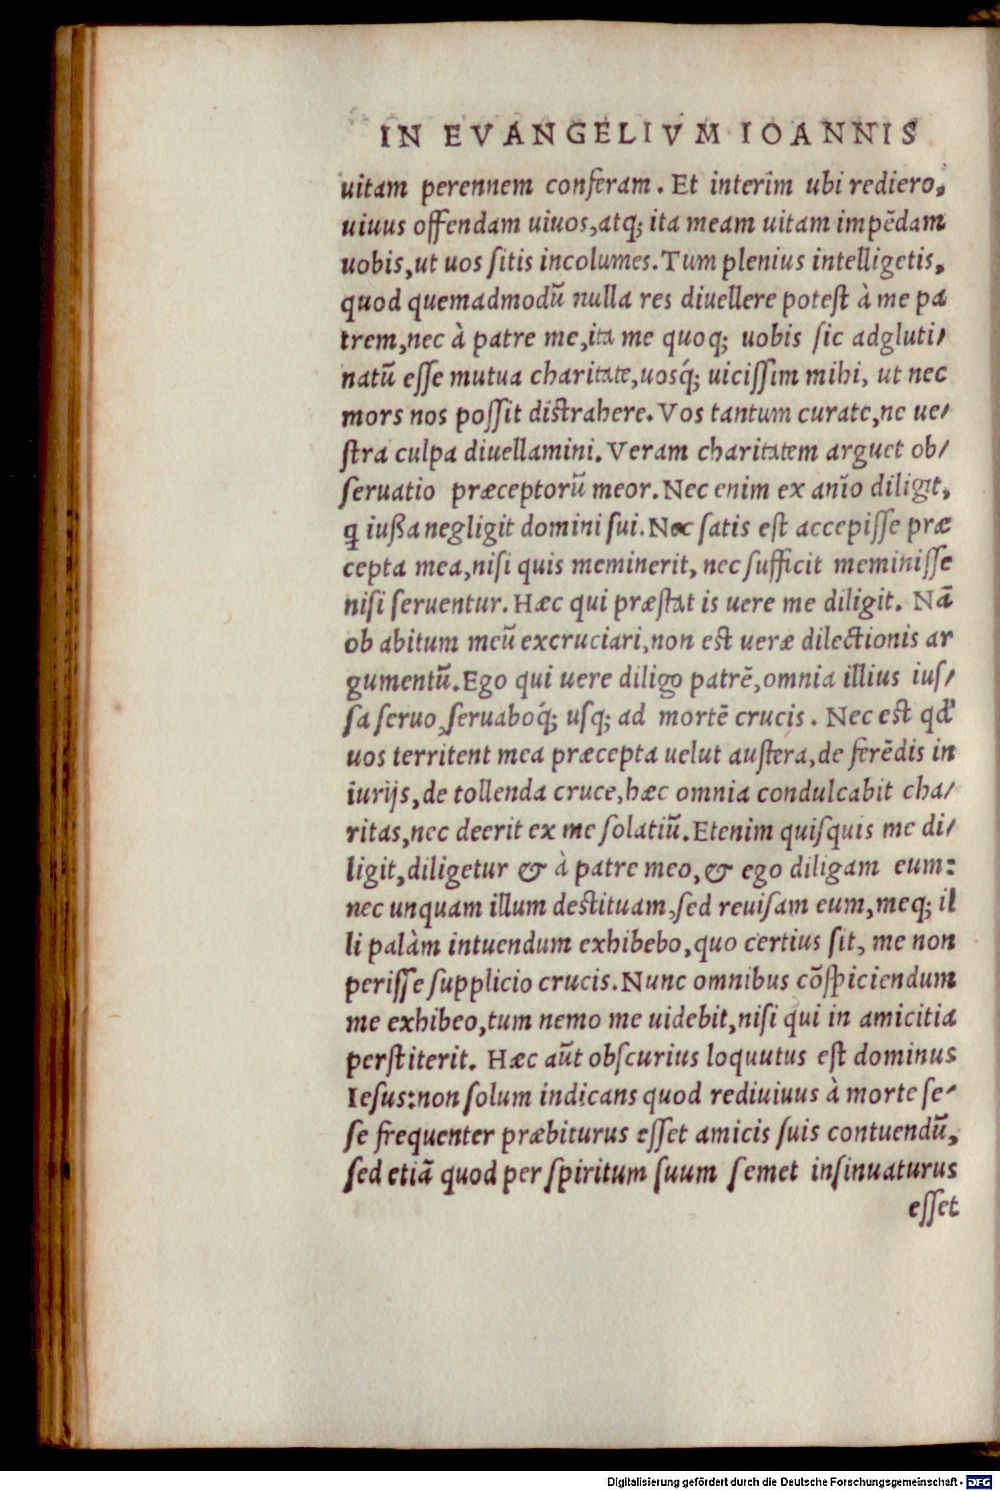 IN EVANGELIVM IOANNIS
uitam perennem conferam. Et interim ubi rediero,
uiuus offendam uiuos, atq; ita meam uitam impẽdam
uobis, ut uos sitis incolumes. Tum plenius intelligetis,
quod quemadmodũ nulla res diuellere potest à me pa
trem, nec à patre me, ita me quoq; uobis sic adgluti/
natũ esse mutua charitate, uosq́; uicissim mihi, ut nec
mors nos possit distrahere. Vos tantum curate, ne ue/
stra culpa diuellamini. Veram charitatem arguet ob/
seruatio præceptorũ meor. Nec enim ex aĩo diligit,
q iußa negligit domini sui. Nec satis est accepisse præ
cepta mea, nisi quis meminerit, nec sufficit meminisse
nisi seruentur. Hæc qui præstat is uere me diligit. Nã
ob abitum meũ excruciari, non est ueræ dilectionis ar
gumentũ. Ego qui uere diligo patrẽ, omnia illius ius/
sa seruo, seruaboq́; usq; ad mortẽ crucis. Nec est qd'
uos territent mea præcepta uelut austera, de ferẽdis in
iurijs, de tollenda cruce, hæc omnia condulcabit cha/
ritas, nec deerit ex me solatiũ. Etenim quisquis me di/
ligit, diligetur & à patre meo, & ego diligam eum:
nec unquam illum destituam, sed reuisam eum, meq; il
li palàm intuendum exhibebo, quo certius sit, me non
perisse supplicio crucis. Nunc omnibus cõspiciendum
me exhibeo, tum nemo me uidebit, nisi qui in amicitia
perstiterit. Hæc aũt obscurius loquutus est dominus
Iesus: non solum indicans quod rediuiuus à morte se/
se frequenter præbiturus esset amicis suis contuendũ,
sed etiã quod per spiritum suum semet insinuaturus
esset
Digitalisierung gefördert durch die Deutsche Forschungsgemeinschaft - DFG